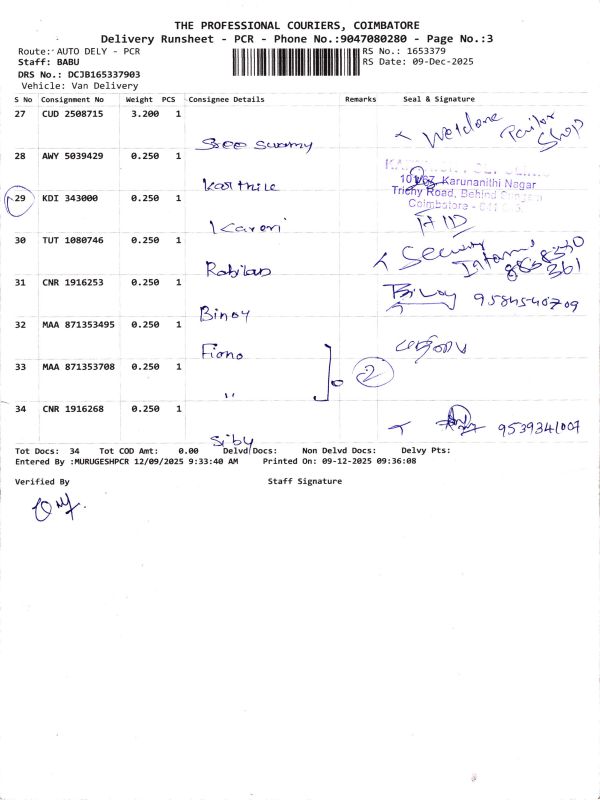 THE PROFESSIONAL COURIERS, COIMBATORE
Delivery Runsheet - PCR - Phone No.:9047080280 - Page No.:3
Route: AUTO DELY - PCR
RS No.: 1653379
Staff: BABU
RS Date: 09-Dec-2025
DRS No.: DCJB165337903
Vehicle: Van Delivery
S No Consignment No Weight PCS Consignee Details Remarks Seal & Signature
27 CUD 2508715 3.200 1
Welcome Tailor Shop
Sree Swamy
28 AWY 5039429 0.250 1
Karthik
29 KDI 343000 0.250 1
Karunanithi Nagar
Trichy Road, Behind
Coimbatore
Kaveri
30 TUT 1080746 0.250 1
Security
31 CNR 1916253 0.250 1
Binoy 9584540709
Binoy
32 MAA 871353495 0.250 1
Fiono
33 MAA 871353708 0.250 1
2
"
34 CNR 1916268 0.250 1
9539341007
Siby
Tot Docs: 34 Tot COD Amt: 0.00 Delvd Docs: Non Delvd Docs: Delvy Pts:
Entered By :MURUGESHPCR 12/09/2025 9:33:40 AM Printed On: 09-12-2025 09:36:08
Verified By Staff Signature